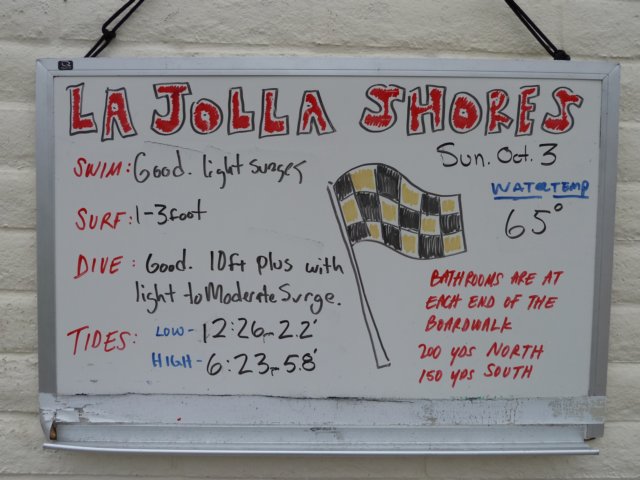 LA JOLLA SHORES
Sun. Oct. 3
SWIM: Good. light surges
WATERTEMP
65°
SURF: 1-3foot
DIVE: Good. 10ft plus with
light to Moderate Surge.
TIDES: LOW- 12:26pm 2.2'
HIGH- 6:23pm 5.8'
BATHROOMS ARE AT
EACH END OF THE
BOARDWALK
200 yds NORTH
150 yds SOUTH